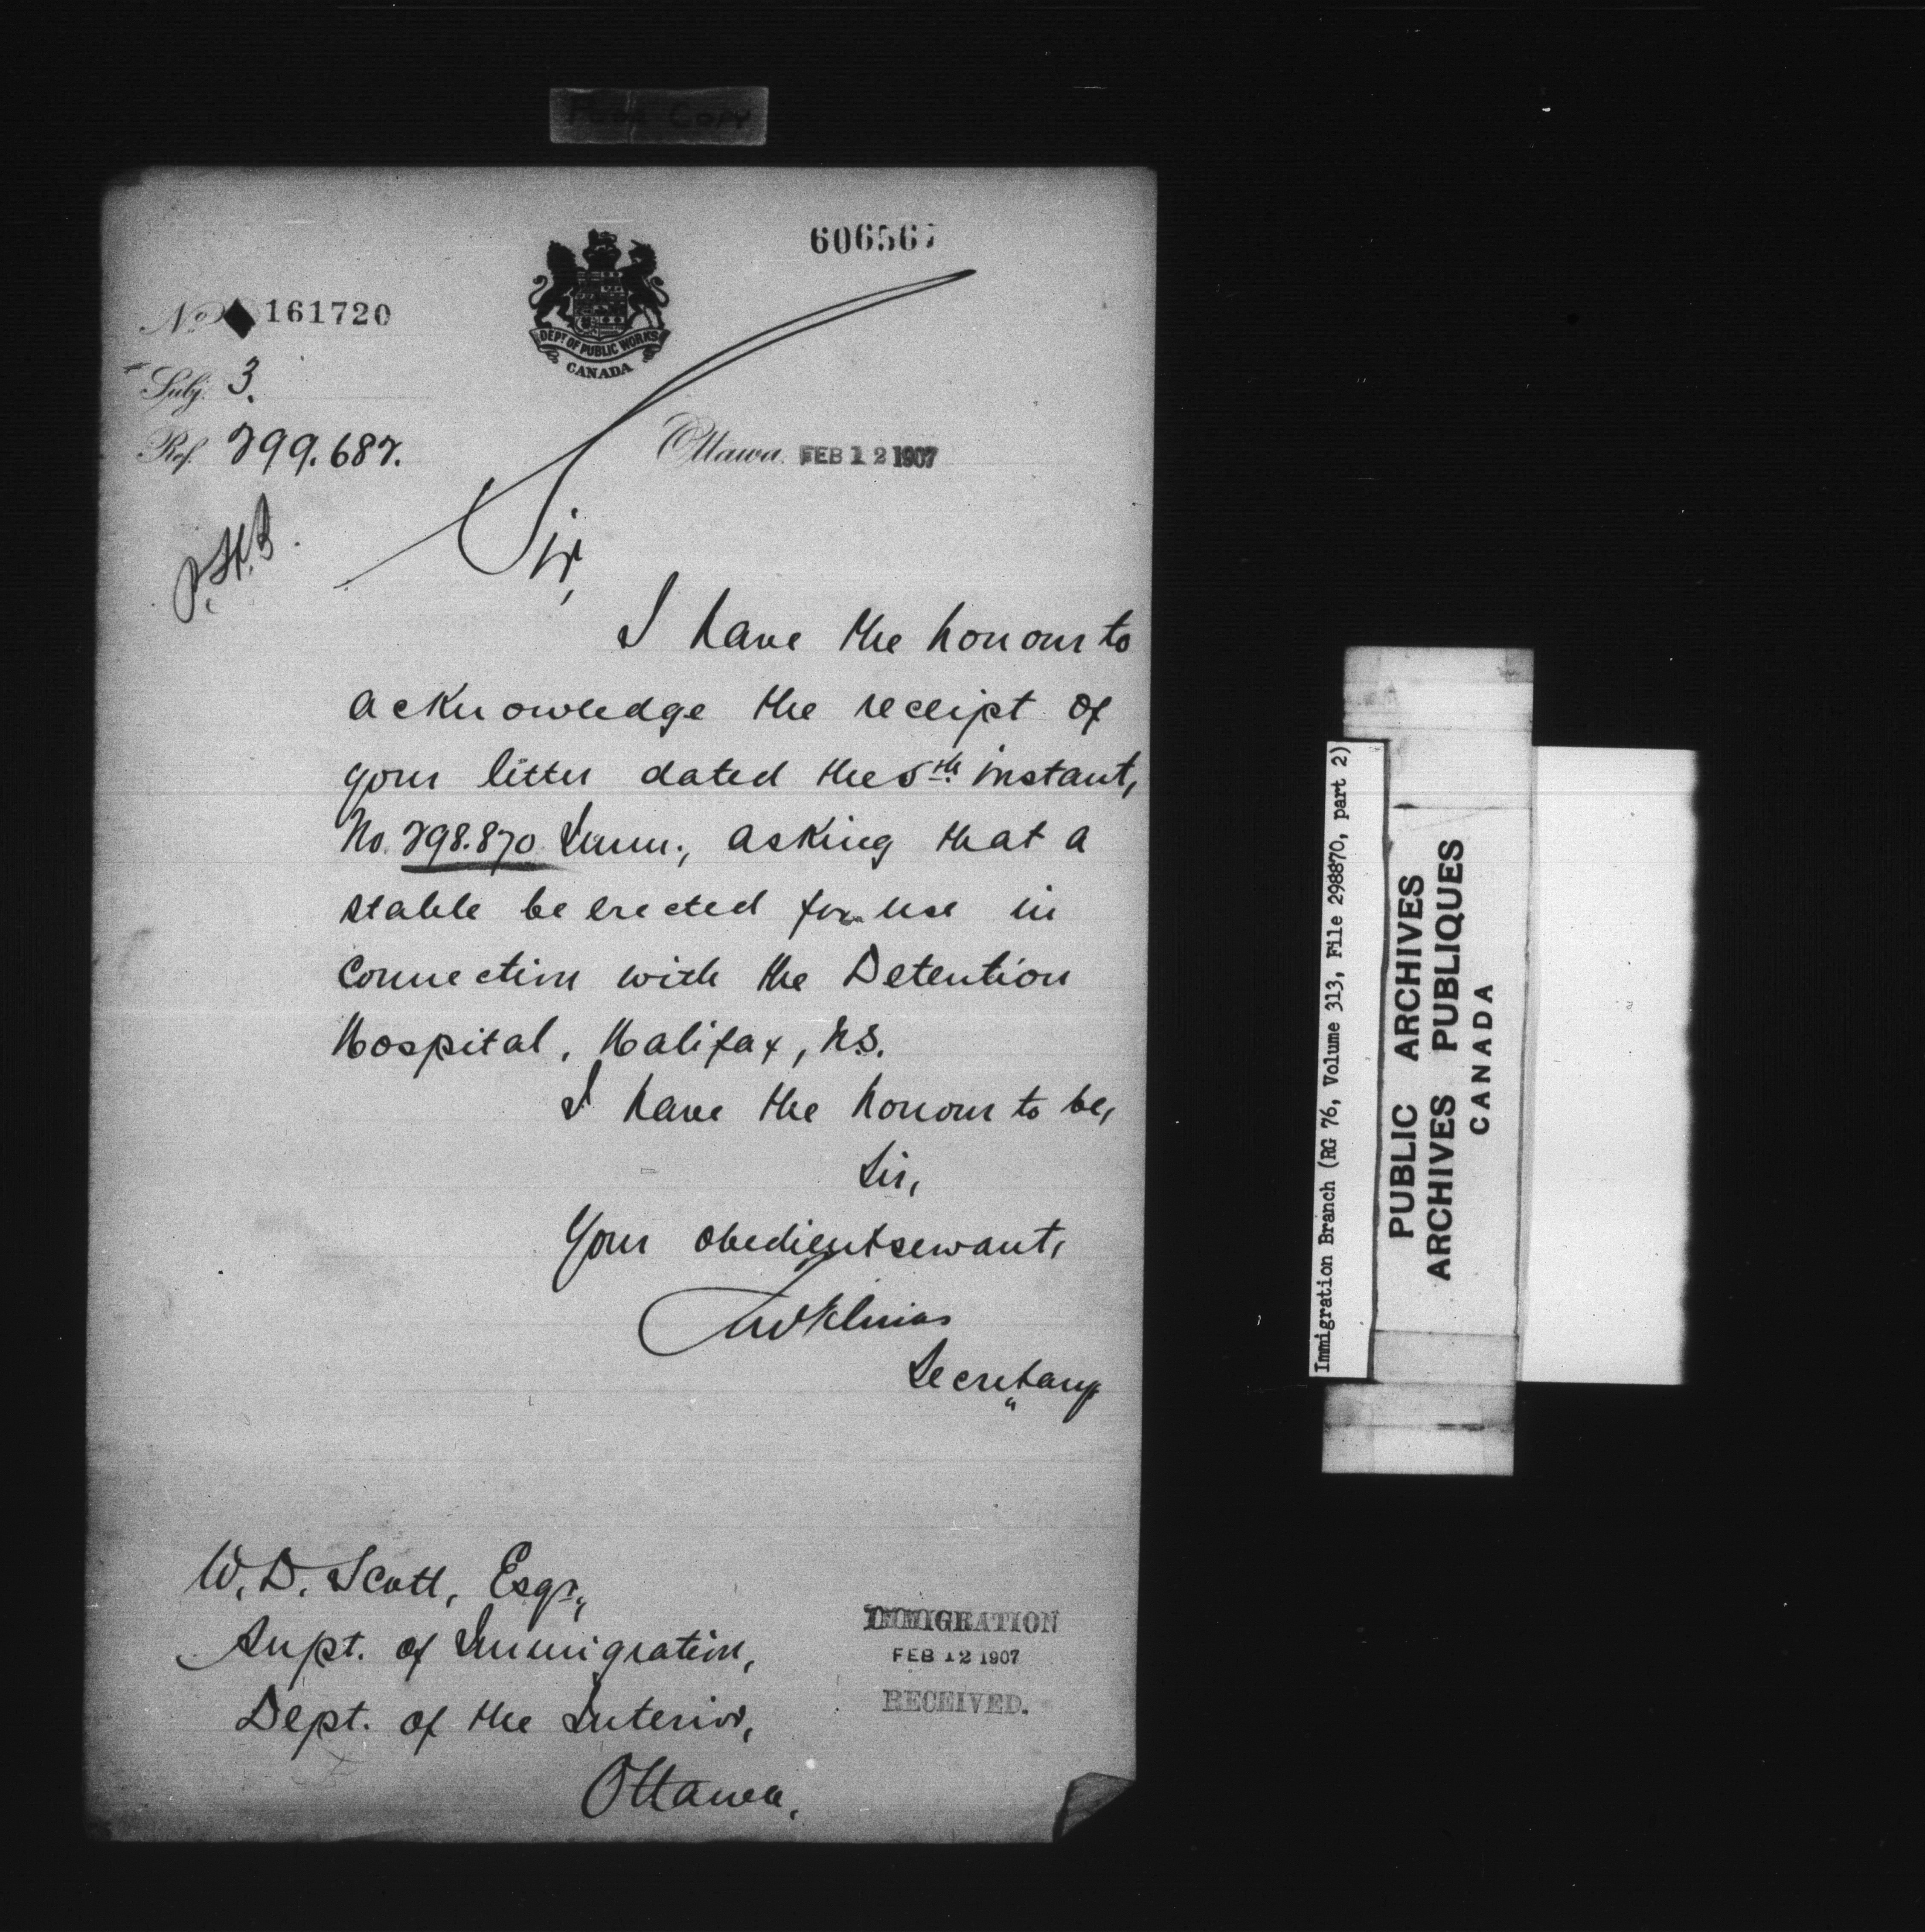 Poor Copy
606567
No 161720
DEPT OF PUBLIC WORKS
CANADA
Subj. 3.
Ref. 299.687.
Ottawa. FEB 12 1907
Sir,
I have the honour to
acknowledge the receipt of
your letter dated the 5th instant,
No. 298.870 Imm., asking that a
stable be erected for use in
connection with the Detention
Hospital, Halifax, N.S.
I have the honour to be,
Sir,
Your obedient servant,
Secretary
W. D. Scott, Esqr.,
Supt. of Immigration,
Dept. of the Interior,
Ottawa.
IMMIGRATION
FEB 12 1907
RECEIVED.
Immigration Branch (RG 76, Volume 313, File 298870, part 2)
PUBLIC ARCHIVES
ARCHIVES PUBLIQUES
CANADA